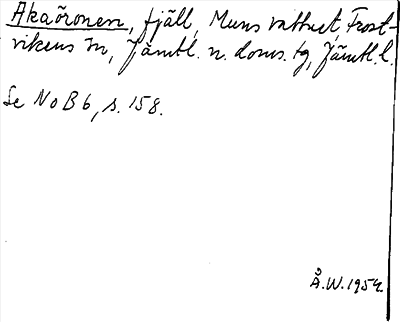 Akaöronen, fjäll, Munsvattnet, Frost-
vikens sn, Jämtl. n. doms. tg, Jämtl. l.
Se NoB 6, s. 158.
Å.W. 1954.